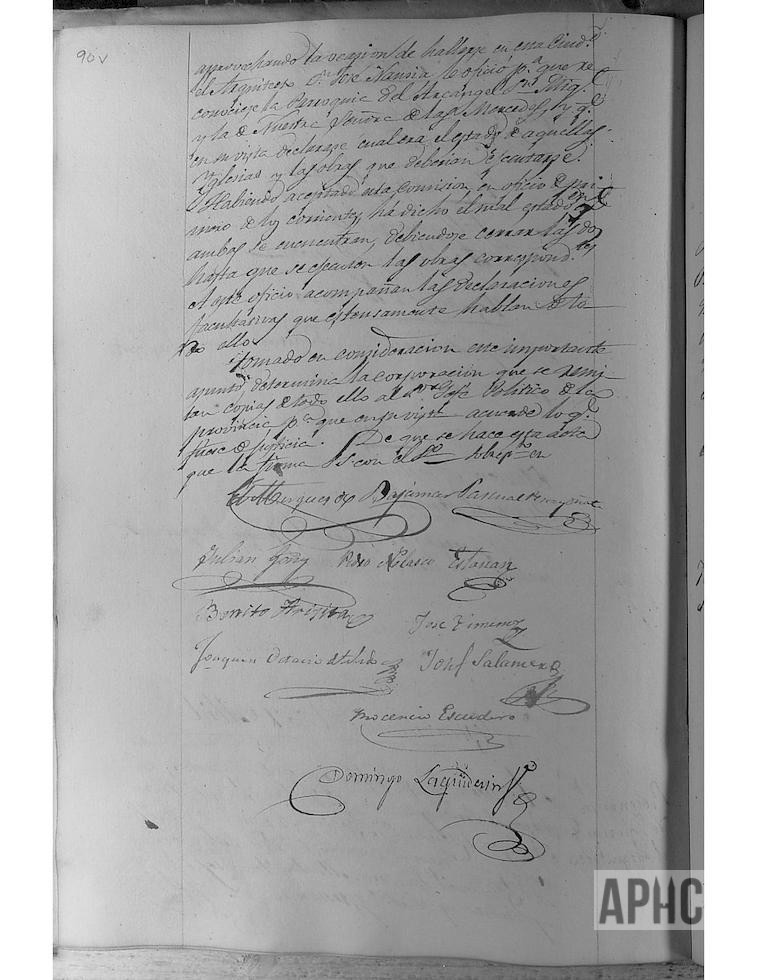 90v
aprovechando la ocasion de hallarse en esta Ciud.d
el Arquitecto Dn José Nausia le ofició p.a que re
conociese la Parroquia del Arcangel Sn Mig.l
y la de Nuestra Señora de las Mercedes, y q.e
en su vista declarase cual era el estado de aquellas
Yglesias y las obras que deberian ejecutarse.
Habiendo aceptado esta comision, en oficio de pri
mero de los corrientes, ha dicho el mal estado en q.e
ambas se encuentran, debiendose cerrar las dos
hasta que se ejecuten las obras correspond.tes
á este oficio acompañan las declaraciones
facultativas que estensamente hablan de to
do ello.
Tomado en consideracion este importante
asunto, determina la corporacion que se remi
tan copias de todo ello al S.or Jefe Politico de la
provincia p.a que en su vista acuerde lo q.e
fuese de justicia. De que se hace esta acta
que la firma S.S. con el S.or
El Marques de Bajamar Pascual
Julian Pedro Nolasco Estañan
Benito
José Ximenez
Joaquin Josef Salamero
Inocencio Escudero
Domingo
APHC